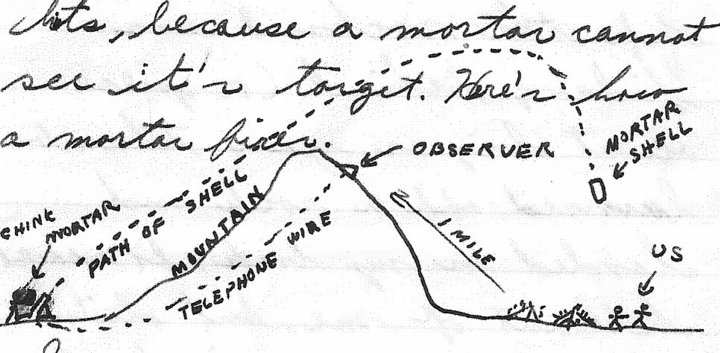 hits, because a mortar cannot
see it's target. Here's how
a mortar fires.
OBSERVER
MORTAR
SHELL
CHINK
MORTAR
PATH OF SHELL
MOUNTAIN
TELEPHONE WIRE
1 MILE
US